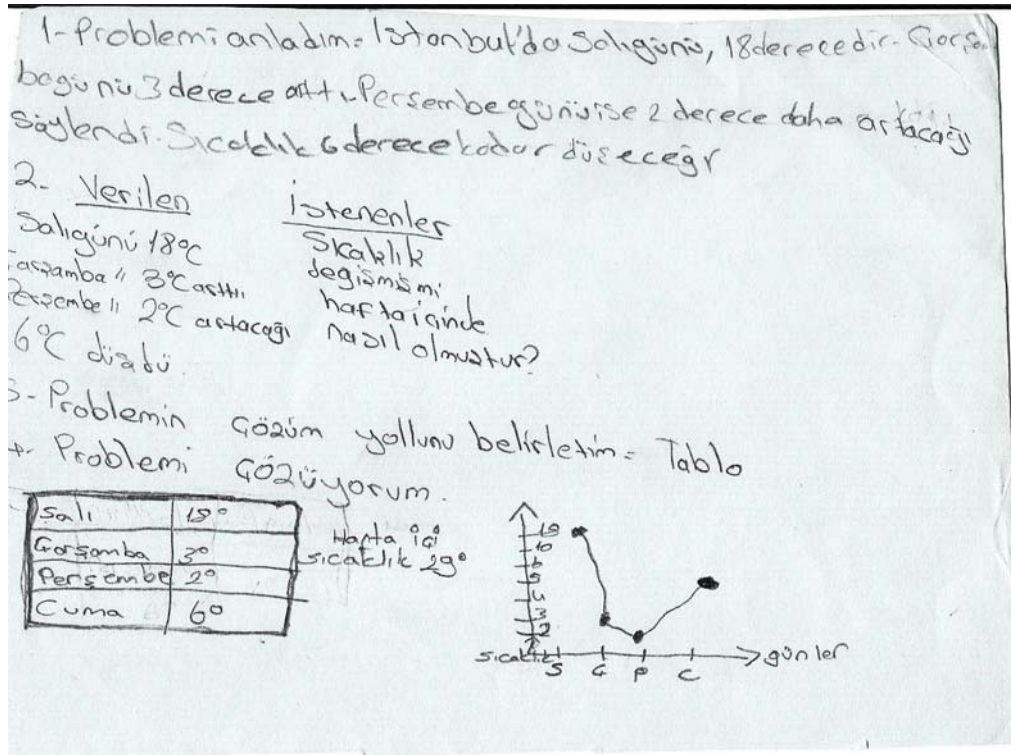 1-Problemi anladım= İstanbul'da Salıgünü, 18derecedir. Çarşam
bagünü 3 derece arttı. Persembe günüise 2 derece daha artacağı
Söylendi. Sıcaklık 6derecekadar düşeceği
2- Verilen
Salıgünü 18°C
Çarşamba " 3°C arttı
Perşembe " 2°C artacağı
6°C düşdü
İstenenler
Sıkaklık
değişmimi
haftaiçinde
nasıl olmuştur?
3-Problemin Çözüm yollunu belirletim= Tablo
4- Problemi Çözüyorum.
Salı 18°
Çorşamba 3°
Perşembe 2°
Cuma 6°
Hafta içi
sıcaklık 29°
18
10
6
5
4
3
2
sıcaklık S Ç P C günler